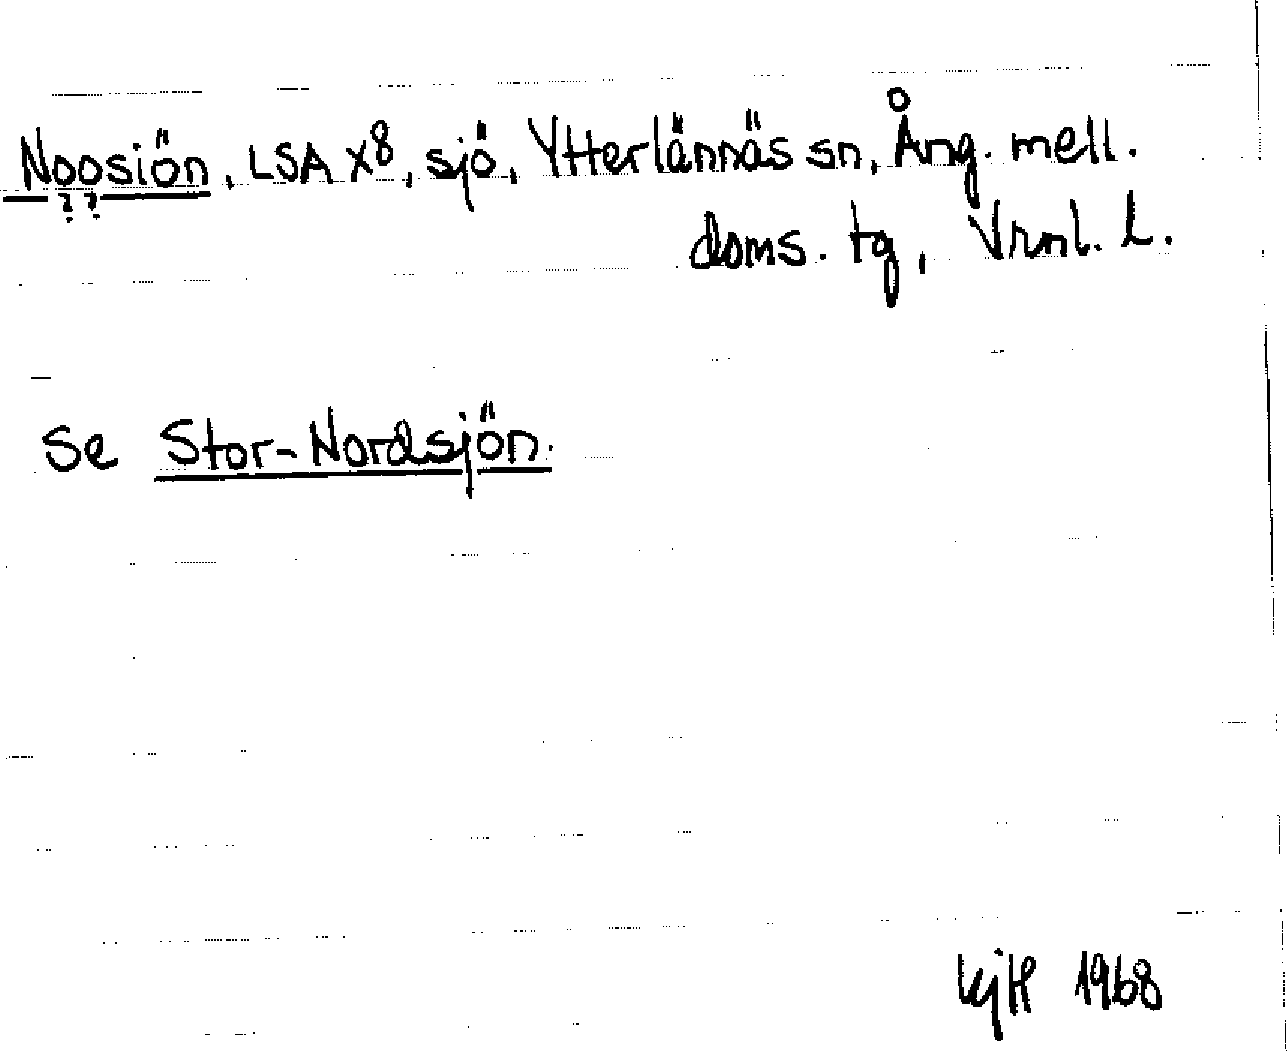 Noosiön, LSA X8, sjö, Ytterlännäs sn, Ång. mell.
? ?
doms. tg, Vrml. L.
Se Stor-Nordsjön.
1968